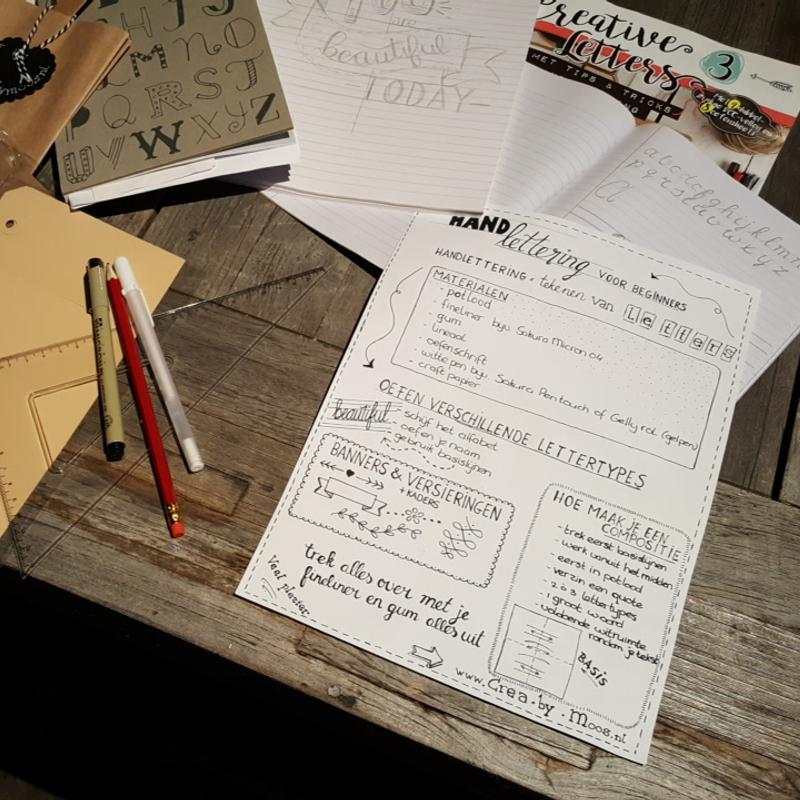 H I J
L M N O
P Q R S T
U V W X Y Z
are
beautiful
TODAY
Creative
Letters
3
MET TIPS & TRICKS
a b c d e f g h i j k l m n
p q r s t u v w x y z
HAND lettering VOOR BEGINNERS
HANDLETTERING = tekenen van Letters
MATERIALEN
- potlood
- fineliner bijv. Sakura Micron 04
- gum
- lineaal
- oefenschrift
- witte pen bijv. Sakura Pentouch of Gelly rol (gelpen)
- craft papier
OEFEN VERSCHILLENDE LETTERTYPES
beautiful
- schijf het alfabet
- oefen je naam
- gebruik basislijnen
BANNERS & VERSIERINGEN
+ KADERS
HOE MAAK JE EEN
COMPOSITIE
- trek eerst basislijnen
- werk vanuit het midden
- eerst in potlood
- verzin een quote
- 2 à 3 lettertypes
- 1 groot woord
- voldoende witruimte
rondom je tekst
BASIS
trek alles over met je
fineliner en gum alles uit
Veel plezier
www.Crea.by.Moos.nl